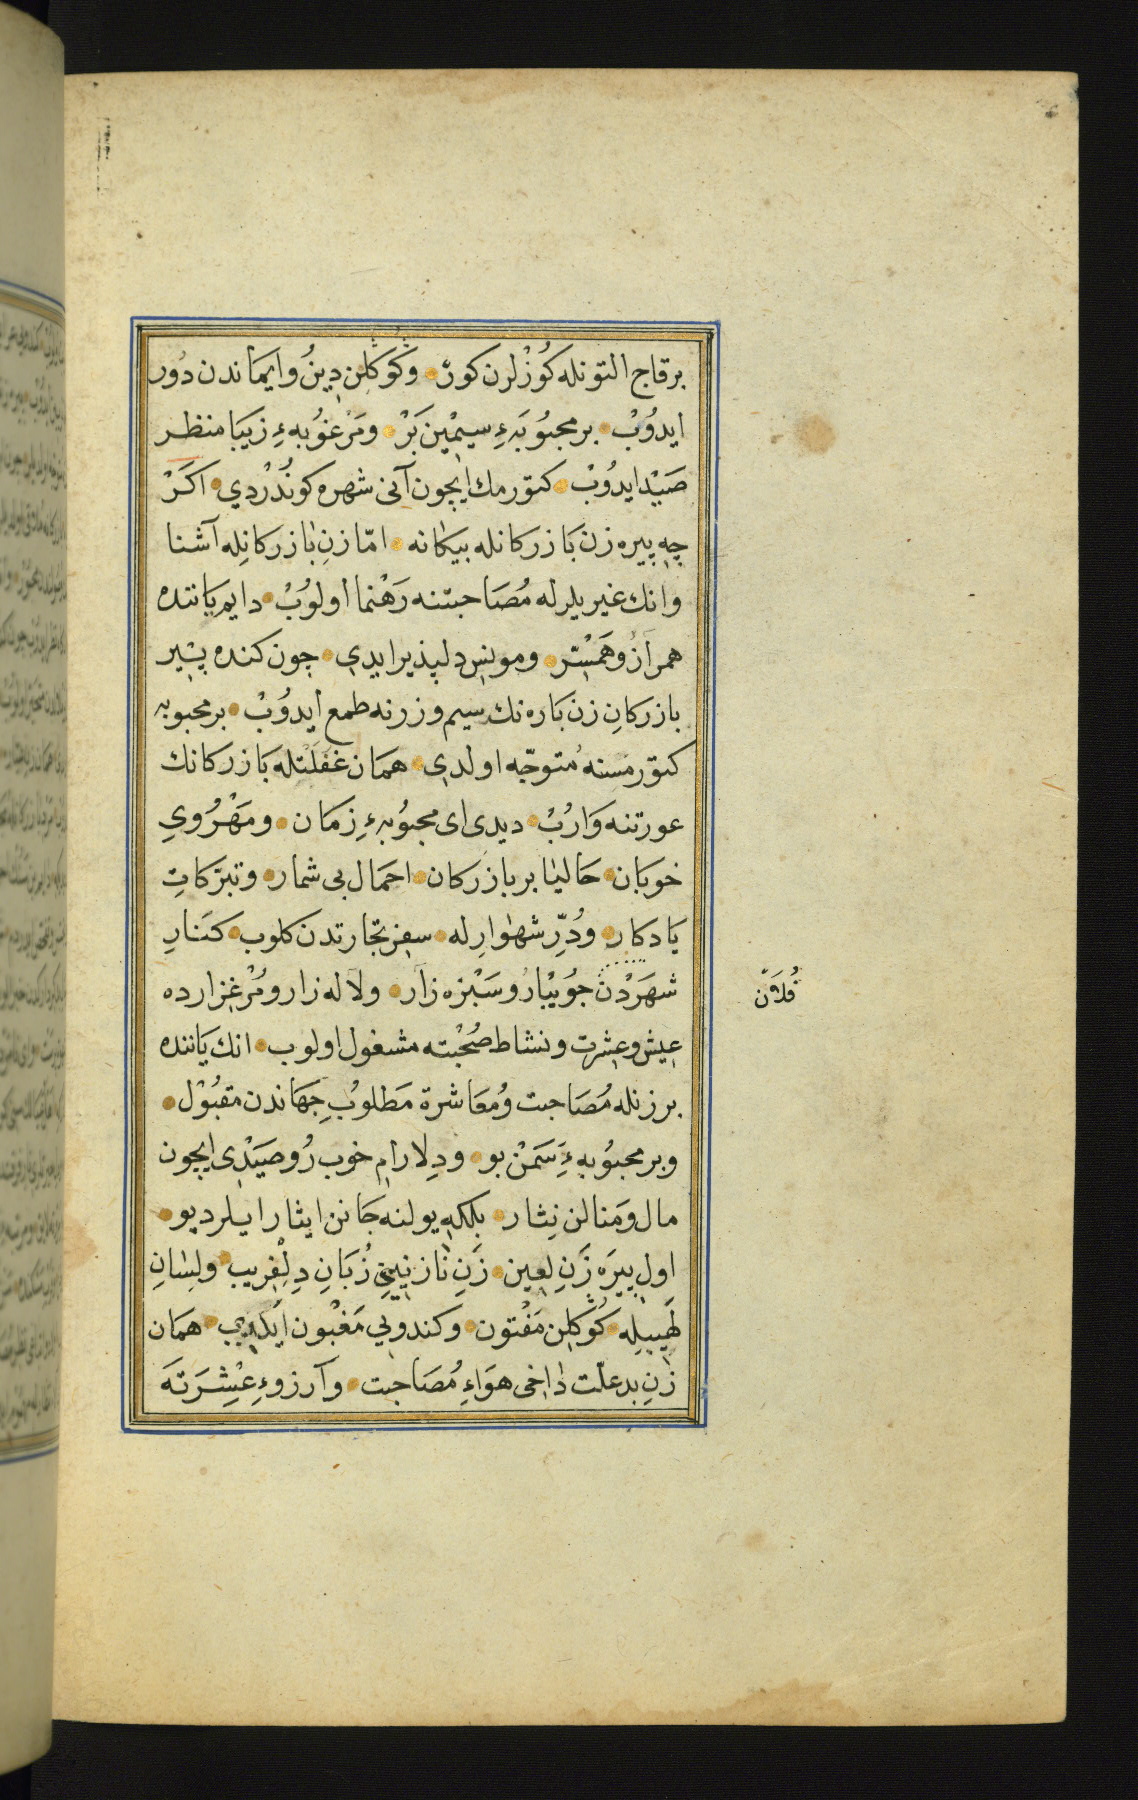 برقاج التونله كُوزْلرن كورّ • وكُوكلن دِينُ وايمَاندن دُور
ايدُوبْ • بر محبُوبَهءِ سيمْين بَرْ • ومَرْغوُبهءِ زيبَا منظر
صَيْد ايدُوبْ • كتورمك ايچون آنى شهره كونُدْردي • اكَرْ
چه پيره زن بَازركانله بيكانه • امّا زنِ بازركانِله آشنا
وانك غيريلرله مُصَاحبتنه رَهْنما اولوُبْ • دايم يَاننده
همرازُ وهَمْسْتر • ومونسِ دلپذير ايدى • چون كنده پيْشير
بازركانِ زن بَاره نك سيم وزرنه طمع ايدُوبْ • بر محبوبه
كتورمسنه مُتوجّه اولدى • همَان غفلَتله بَازركانك
عورتنه وَارُبْ • ديدى اى محبُوبهءِ زمَان • ومَهْرُوىِ
خوبَان • حَاليٰا بر بازركان • احمَال بى شمار • وتبرّكاتِ
يَادكار • ودُرِّ شهْوارله • سفرِ تجَارتدن كلوب • كنَارِ
شهَرْدنَ جوُيْبَارُ وسَبْزه زَار • ولاله زار ومُرْغزارده
عيش وعشرت ونشاط صُحْبته مشغول اولوب • انك يَاننده
بر زنله مُصَاحبت وُمعَاشرة مَطلوُبِ جهَاندن مقبُوْل •
وبر محبُوبهءِ سَمَنْ بو • ودِلارامِ خوب رُو صَيْدى ايچون
مال ومَنالن نِثار • بلكه يولنه جَانن ايثار ايلر ديو •
اول پيرَه زَنِ لعين • زَنِ نازنينى زُبَانِ دِلْفريب • ولِسٰانِ
طَيبله • كُوكلِن مَفْتون • وكندويى مَغْبون ايْديجك • همَان
زنِ بدعلّت دٰاخى هوَاءِ مُصَاحبت • وآرزوءِ عِشْرَتهَ
فُلَانَ